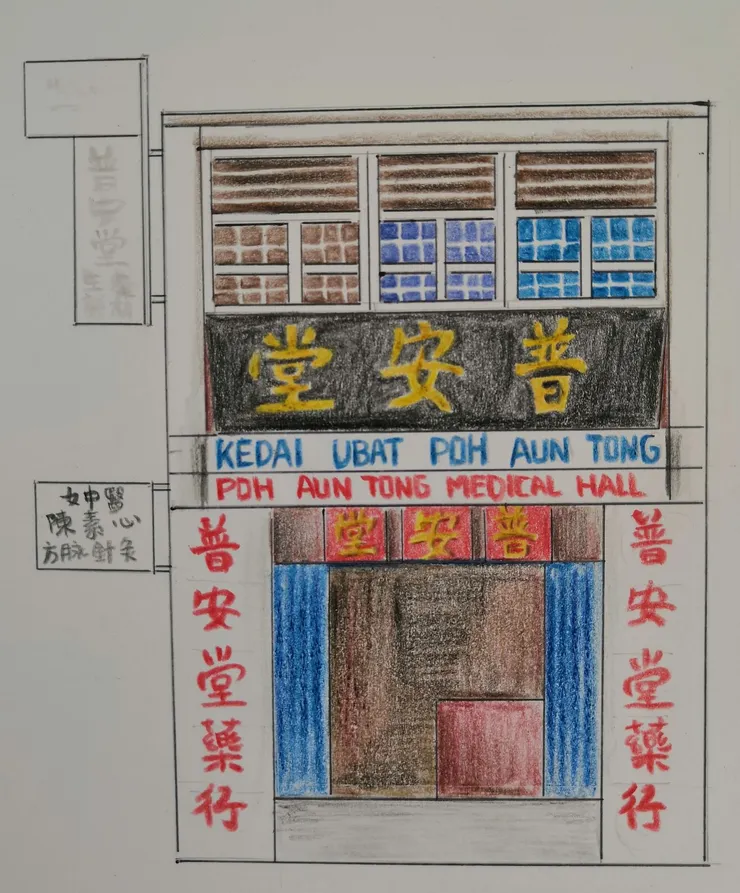 普安堂
KEDAI UBAT POH AUN TONG
POH AUN TONG MEDICAL HALL
女中醫
陳素心
方脉針灸
普安堂
普安堂藥行
普安堂藥行